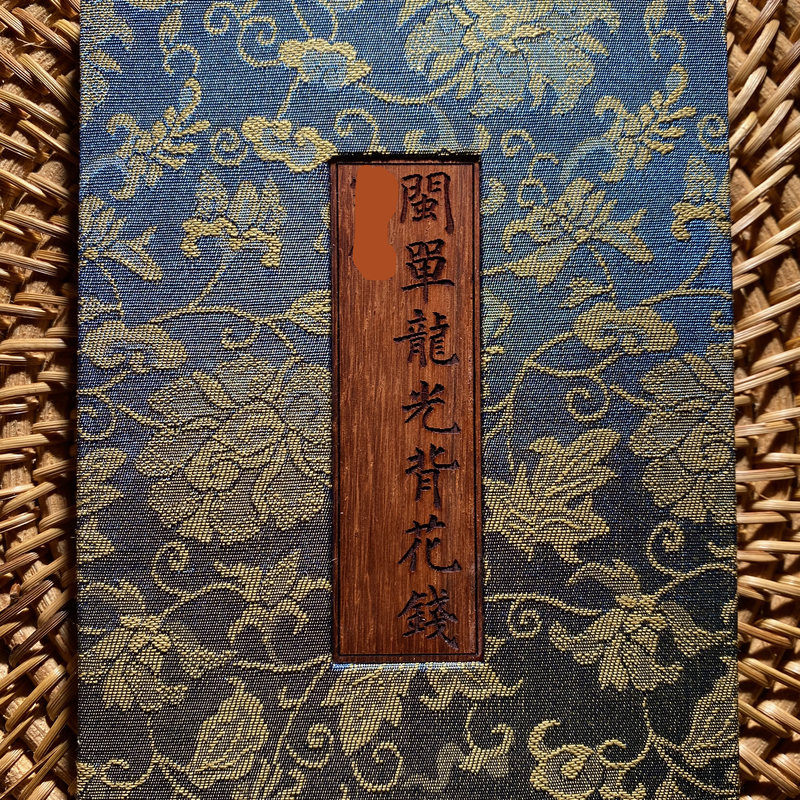 閩單龍光背花錢